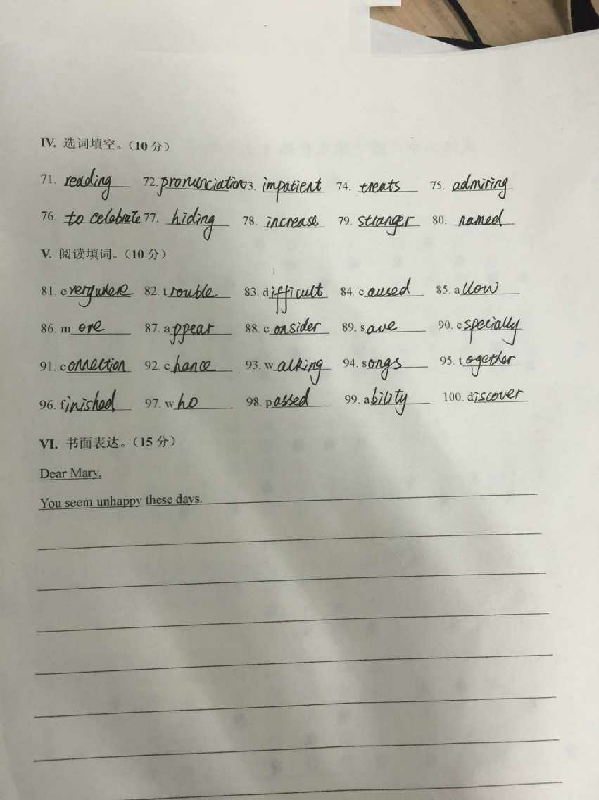 IV. 选词填空。（10 分）
71. reading 72. pronunciation 73. impatient 74. treats 75. admiring
76. to celebrate 77. hiding 78. increase 79. stranger 80. named
V. 阅读填词。（10 分）
81. everywhere 82. trouble 83. difficult 84. caused 85. allow
86. more 87. appear 88. consider 89. save 90. especially
91. connection 92. chance 93. walking 94. songs 95. together
96. finished 97. who 98. passed 99. ability 100. discover
VI. 书面表达。（15 分）
Dear Mary,
You seem unhappy these days.